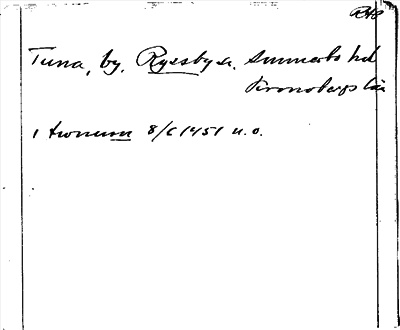 Tuna, by, Ryssby sn. Sunnerbo hd
Kronobergs län
1 8/6 1951 u.o.